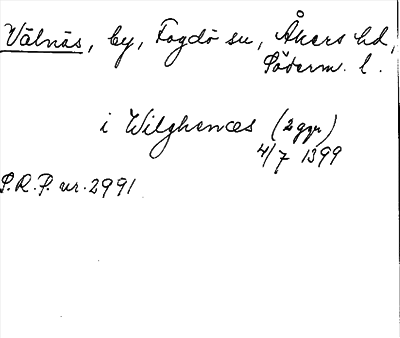 Välnäs, by, Fogdö sn, Åkers hd,
Söderm. l.
i Wilghenæs (2 ggr)
4/7 1399
S.R.P. nr. 2991